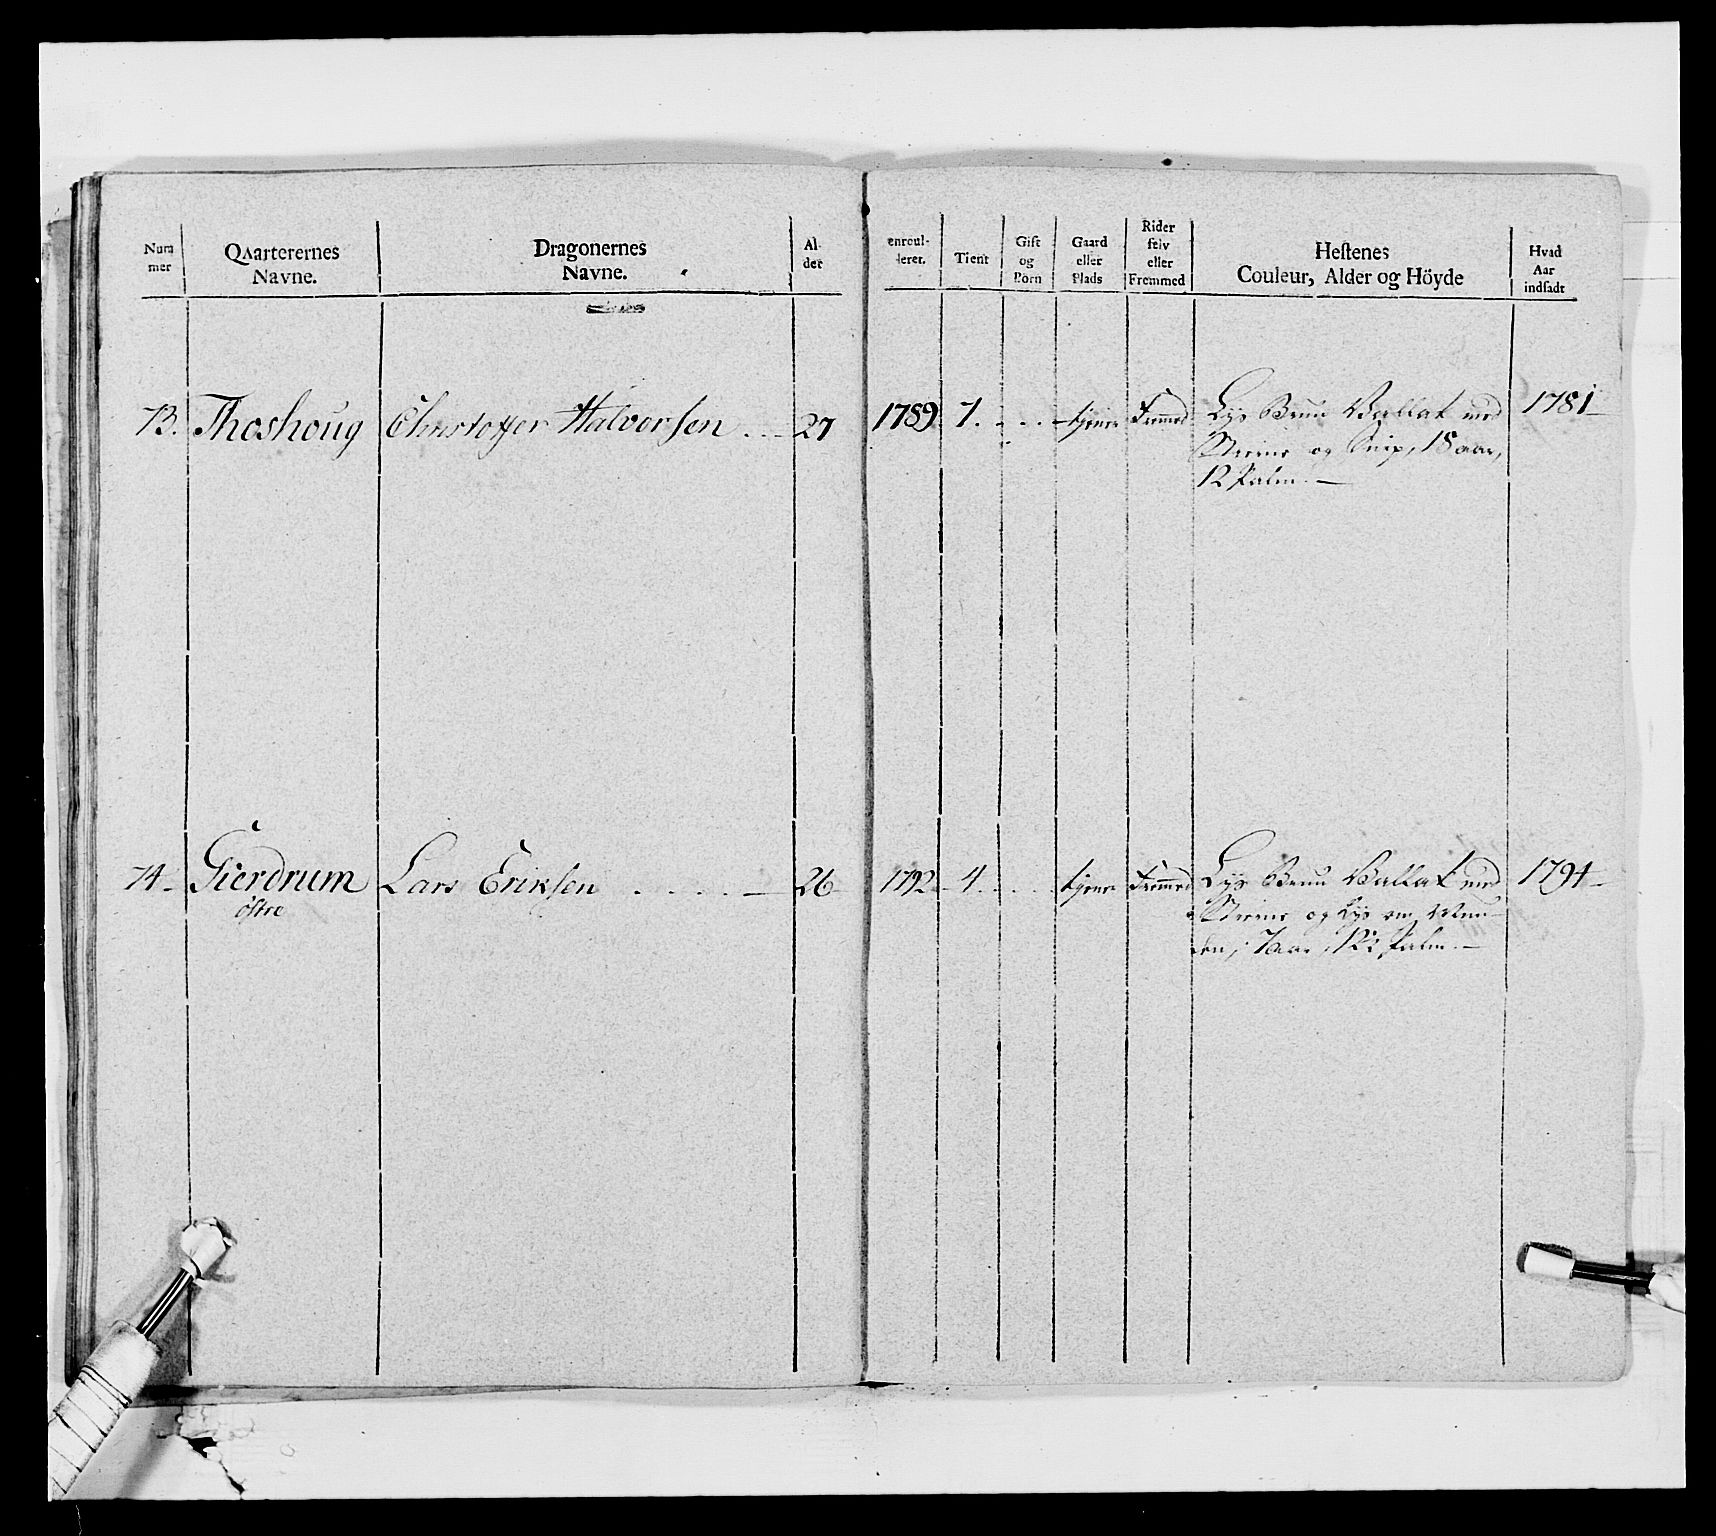 Num
mer
Qvarterernes
Navne.
Dragonernes
Navne.
Al-
der
enroul-
leret.
Tient
Gift
og
Börn
Gaard
eller
Plads
Rider
selv
eller
Fremmed
Hestenes
Couleur, Alder og Höyde
Hvad
Aar
indsadt
73. Thoshoug Christoffer Halvorsen ... 27 1789 7. . . . tjener Fremed Lys Brun Vallak med 1781
Stierne og Snip, 18 aar,
12 Palm.
74. Gierdrum Lars Eriksen . . . . . 26 1792 4. . . . tjener Fremed Lys Brun Vallak med 1794
östre Stierne og Lys om Mun-
den, 7 aar, 12½ Palm.